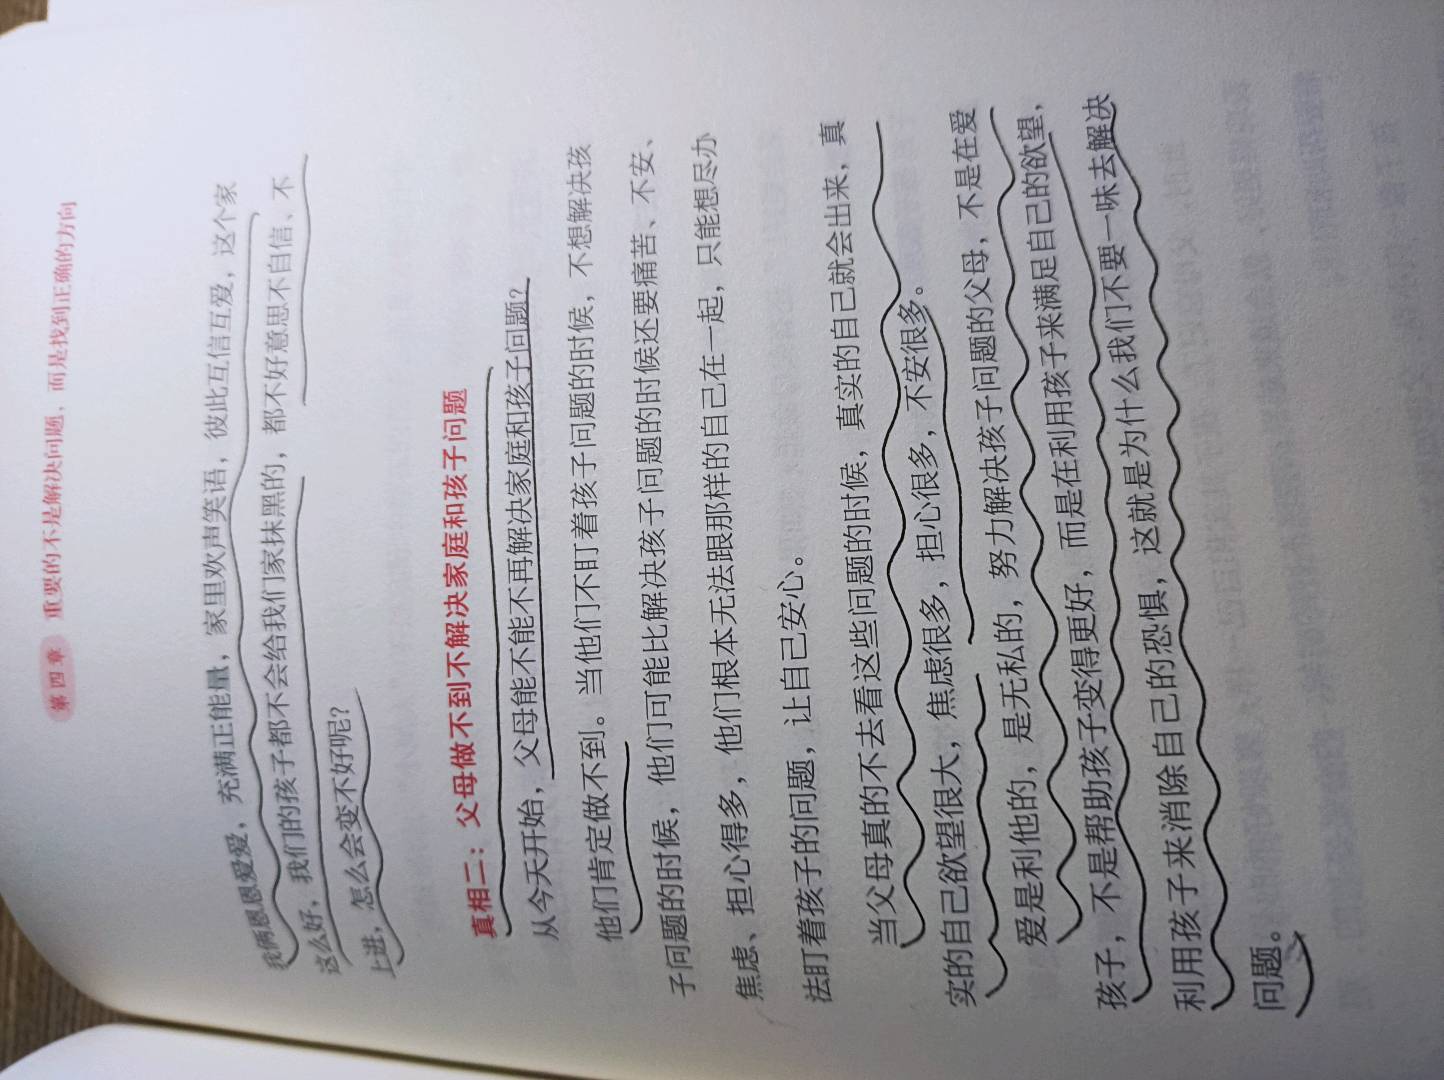 第四章 重要的不是解决问题，而是找到正确的方向
我俩恩恩爱爱，充满正能量，家里欢声笑语，彼此互信互爱，这个家
这么好，我们的孩子都不会给我们家抹黑的，都不好意思不自信、不
上进，怎么会变不好呢？
真相二：父母做不到不解决家庭和孩子问题
从今天开始，父母能不能不再解决家庭和孩子问题？
他们肯定做不到。当他们不盯着孩子问题的时候，不想解决孩
子问题的时候，他们可能比解决孩子问题的时候还要痛苦、不安、
焦虑、担心得多，他们根本无法跟那样的自己在一起，只能想尽办
法盯着孩子的问题，让自己安心。
当父母真的不去看这些问题的时候，真实的自己就会出来，真
实的自己欲望很大，焦虑很多，担心很多，不安很多。
爱是利他的，是无私的，努力解决孩子问题的父母，不是在爱
孩子，不是帮助孩子变得更好，而是在利用孩子来满足自己的欲望，
利用孩子来消除自己的恐惧，这就是为什么我们不要一味去解决
问题。